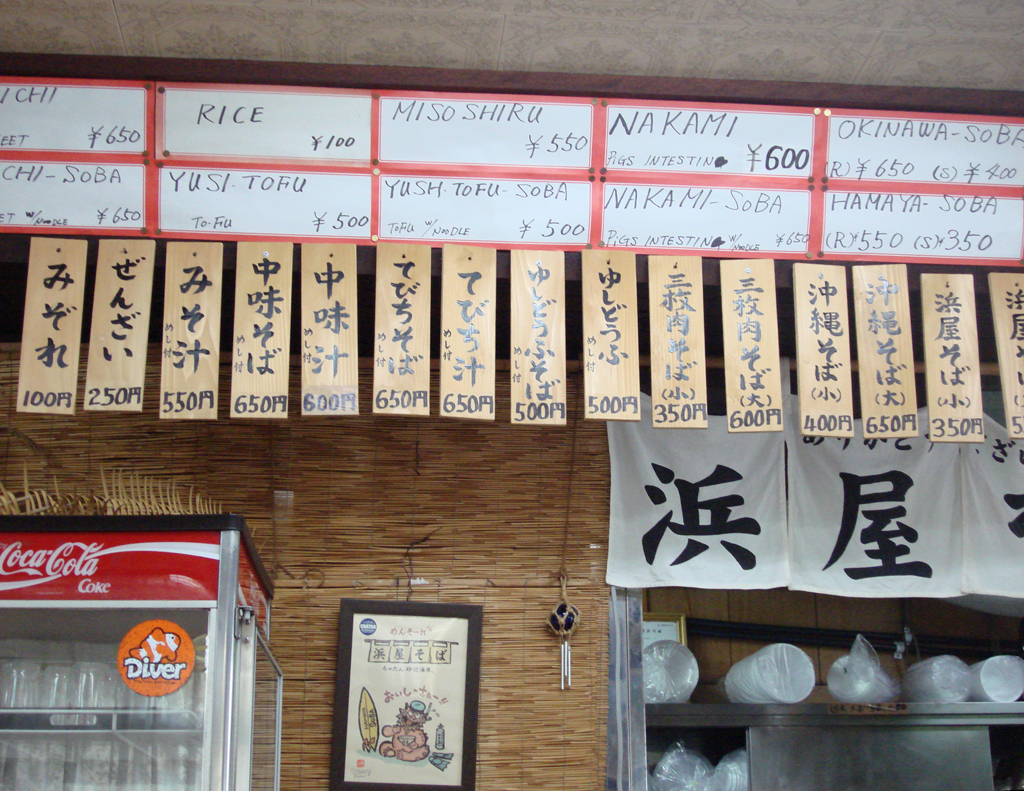 ICHI
EET ¥650
RICE
¥100
MISO SHIRU
¥550
NAKAMI
PIGS INTESTIN ¥600
OKINAWA-SOBA
(R) ¥650 (S) ¥400
CHI-SOBA
ET W/NOODLE ¥650
YUSI-TOFU
TO-FU ¥500
YUSH-TOFU-SOBA
TOFU W/NOODLE ¥500
NAKAMI-SOBA
PIGS INTESTIN W/NOODLE ¥650
HAMAYA-SOBA
(R)¥550 (S)¥350
みぞれ
100円
ぜんざい
250円
みそ汁
めし付
550円
中味そば
めし付
650円
中味汁
めし付
600円
てびちそば
めし付
650円
てびち汁
めし付
650円
ゆしどうふそば
めし付
500円
ゆしどうふ
めし付
500円
三枚肉そば(小)
350円
三枚肉そば(大)
600円
沖縄そば(小)
400円
沖縄そば(大)
650円
浜屋そば(小)
350円
5
浜屋そ
Coca-Cola
Coke
Diver
めんそーれ
浜屋そば
おいしいさぁー!!